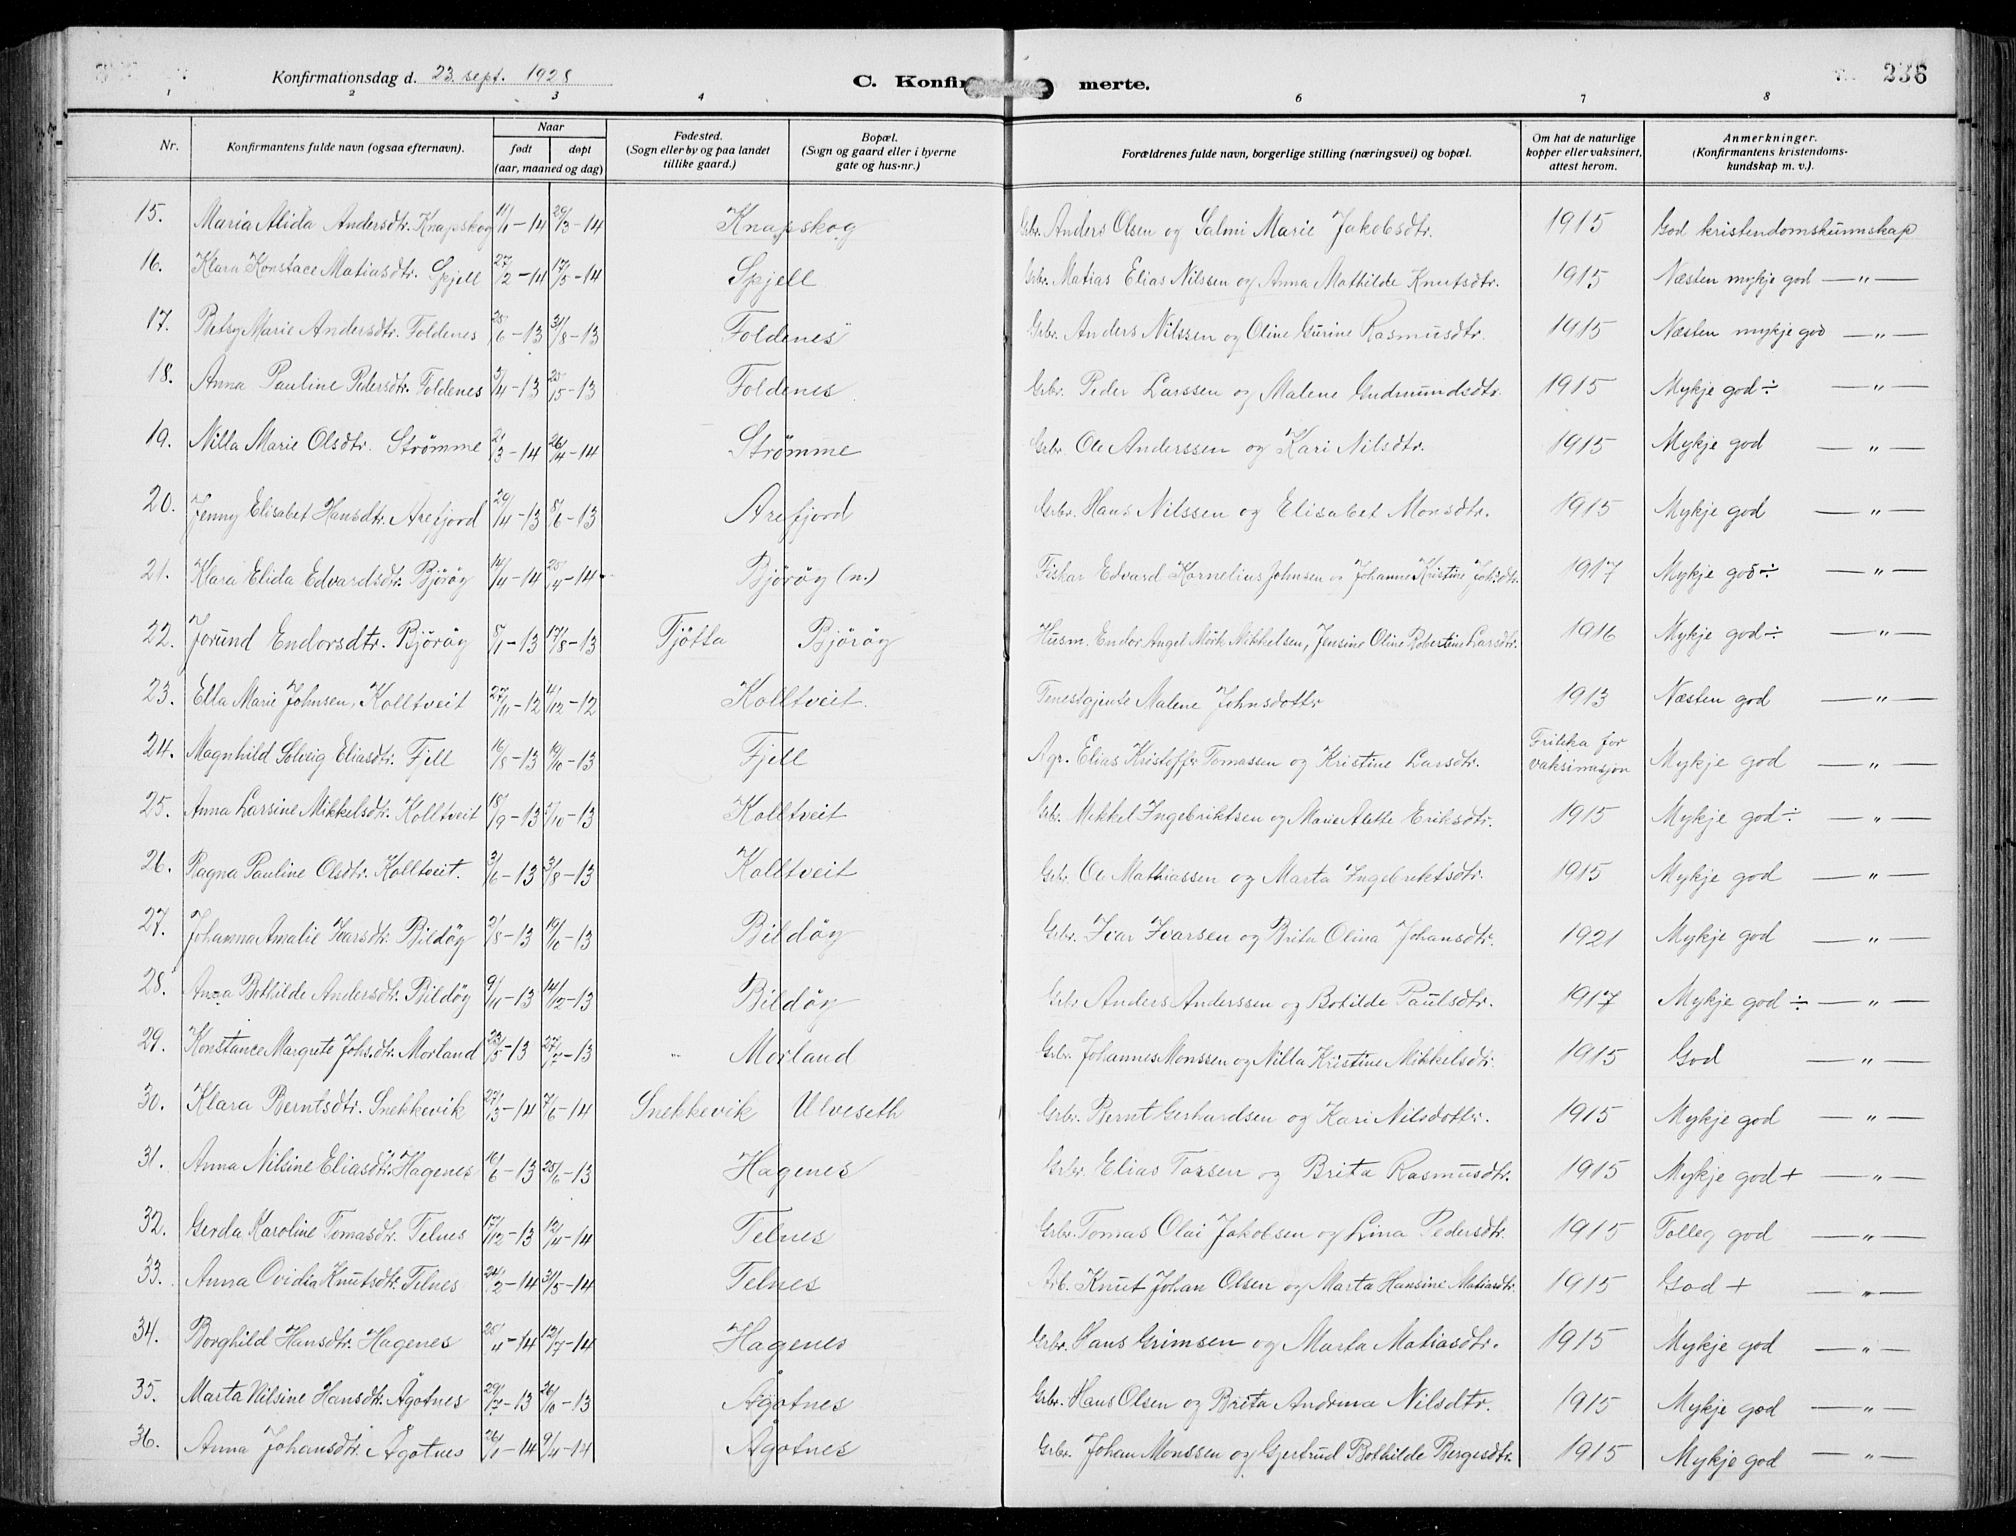 Konfirmationsdag d. 23. sept. 1928
C. Konfir merte.
236
1 2 3 4 6 7 8
Nr.
Konfirmantens fulde navn (ogsaa efternavn).
Naar
født døpt
(aar, maaned og dag)
Fødested.
(Sogn eller by og paa landet
tillike gaard.)
Bopæl.
(Sogn og gaard eller i byerne
gate og hus-nr.)
Forældrenes fulde navn, borgerlige stilling (næringsvei) og bopæl.
Om hat de naturlige
kopper eller vaksinert,
attest herom.
Anmerkninger.
(Konfirmantens kristendoms-
kundskap m. v.).
15. Maria Alida Andersdtr. Knapskog 11/1-14 29/3-14 Knapskog Grbr. Anders Olsen og Salmi Marie Jakobsdtr. 1915 God kristendomskunnskap
16. Klara Konstace Matiasdtr. Spjell 27/2-14 17/5-14 Spjell Grbr. Matias Elias Nilssen og Anna Mathilde Knutsdtr. 1915 Næsten mykje god — " —
17. Betsy Marie Andersdtr. Foldenes 25/6-13 31/8-13 Foldenes Grbr. Anders Nilssen og Oline Gurine Rasmusdtr. 1915 Næsten mykje god — " —
18. Anna Pauline Pedersdtr. Foldenes 3/4-13 25/5-13 Foldenes Grbr. Peder Larssen og Malene Gudmundsdtr. 1915 Mykje god ÷ — " —
19. Nilla Marie Olsdtr. Strømme 21/3-14 26/4-14 Strømme Grbr. Ole Anderssen og Kari Nilsdtr. 1915 Mykje god — " —
20. Jenny Elisabet Hansdtr. Arefjord 29/4-13 8/6-13 Arefjord Grbr. Hans Nilssen og Elisabet Monsdtr. 1915 Mykje god — " —
21. Klara Elida Edvardsdtr. Bjørøy 14/4-14 25/4-14 Bjørøy (n.) Fiskar Edvard Kornelius Johnsen og Johanne Kristine Johsdtr. 1917 Mykje god ÷ — " —
22. Jorund Endorsdtr. Bjørøy 8/1-13 17/8-13 Tjøtta Bjørøy Husm. Endor Angel Mørk Mikkelsen, Jensine Oline Robertine Larsdtr. 1916 Mykje god ÷ — " —
23. Ella Marie Johnsen, Kolltveit 27/11-12 4/12-12 Kolltveit. Tenestgjente Malene Johnsdotter 1913 Næsten god — " —
24. Magnhild Solveig Eliasdtr. Fjell 16/8-13 19/10-13 Fjell Agr. Elias Kristoffer Tomassen og Kristine Larsdtr. Friteka for vaksinasjon Mykje god — " —
25. Anna Larsine Mikkelsdtr. Kolltveit 18/9-13 5/10-13 Kolltveit Grbr. Mikkel Ingebriktsen og Marie Alette Eriksdtr. 1915 Mykje god ÷ — " —
26. Ragna Pauline Olsdtr. Kolltveit. 3/6-13 3/8-13 Kolltveit Grbr. Ole Mathiassen og Marta Ingebriktsdtr. 1915 Mykje god — " —
27. Johanna Amalie Ivarsdtr. Bildøy 31/8-13 19/10-13 Bildøy Grbr. Ivar Ivarsen og Brita Olina Johansdtr. 1921 Mykje god — " —
28. Anna Bothilde Andersdtr. Bildøy 9/11-13 14/12-13 Bildøy Grbr Anders Anderssen og Botilde Paulsdtr. 1917 Mykje god ÷ — " —
29. Konstance Margrete Johsdtr. Morland 23/5-13 27/7-13 " Morland Grbr. Johannes Monssen og Nilla Kristine Mikkelsdtr. 1915 God — " —
30. Klara Berntsdtr. Snekkevik 27/3-14 7/6-14 Snekkevik Ulveseth Grbr. Bernt Gerhardsen og Kari Nilsdotter. 1915 Mykje god — " —
31. Anna Nilsine Eliasdtr. Hagenes 16/6-13 25/6-13 Hagenes Grbr. Elias Torsen og Brita Rasmusdtr. 1915 Mykje god + — " —
32. Gerda Karoline Tomasdtr. Telnes 17/12-13 12/4-14 Telnes Grbr. Tomas Olai Jakobsen og Lina Pedersdtr. 1915 Tolleg god — " —
33. Anna Ovidia Knutsdtr. Telnes 24/2-14 31/5-14 Telnes Arb. Knut Johan Olsen og Marta Hansine Matiasdtr. 1915 God + — " —
34. Borghild Hansdtr. Hagenes 25/4-14 12/7-14 Hagenes Grbr. Hans Grimsen og Marta Matiasdtr. 1915 Mykje god — " —
35. Marta Nilsine Hansdtr. Ågotnes 29/7-13 26/10-13 Ågotnes Grbr. Hans Olsen og Brita Andrina Nilsdtr. 1915 Mykje god — " —
36. Anna Johansdtr. Ågotnes 26/1-14 9/4-14 Ågotnes Grbr. Johan Monssen og Gjertrud Bothilde Bergesdtr. 1915 Mykje god — " —